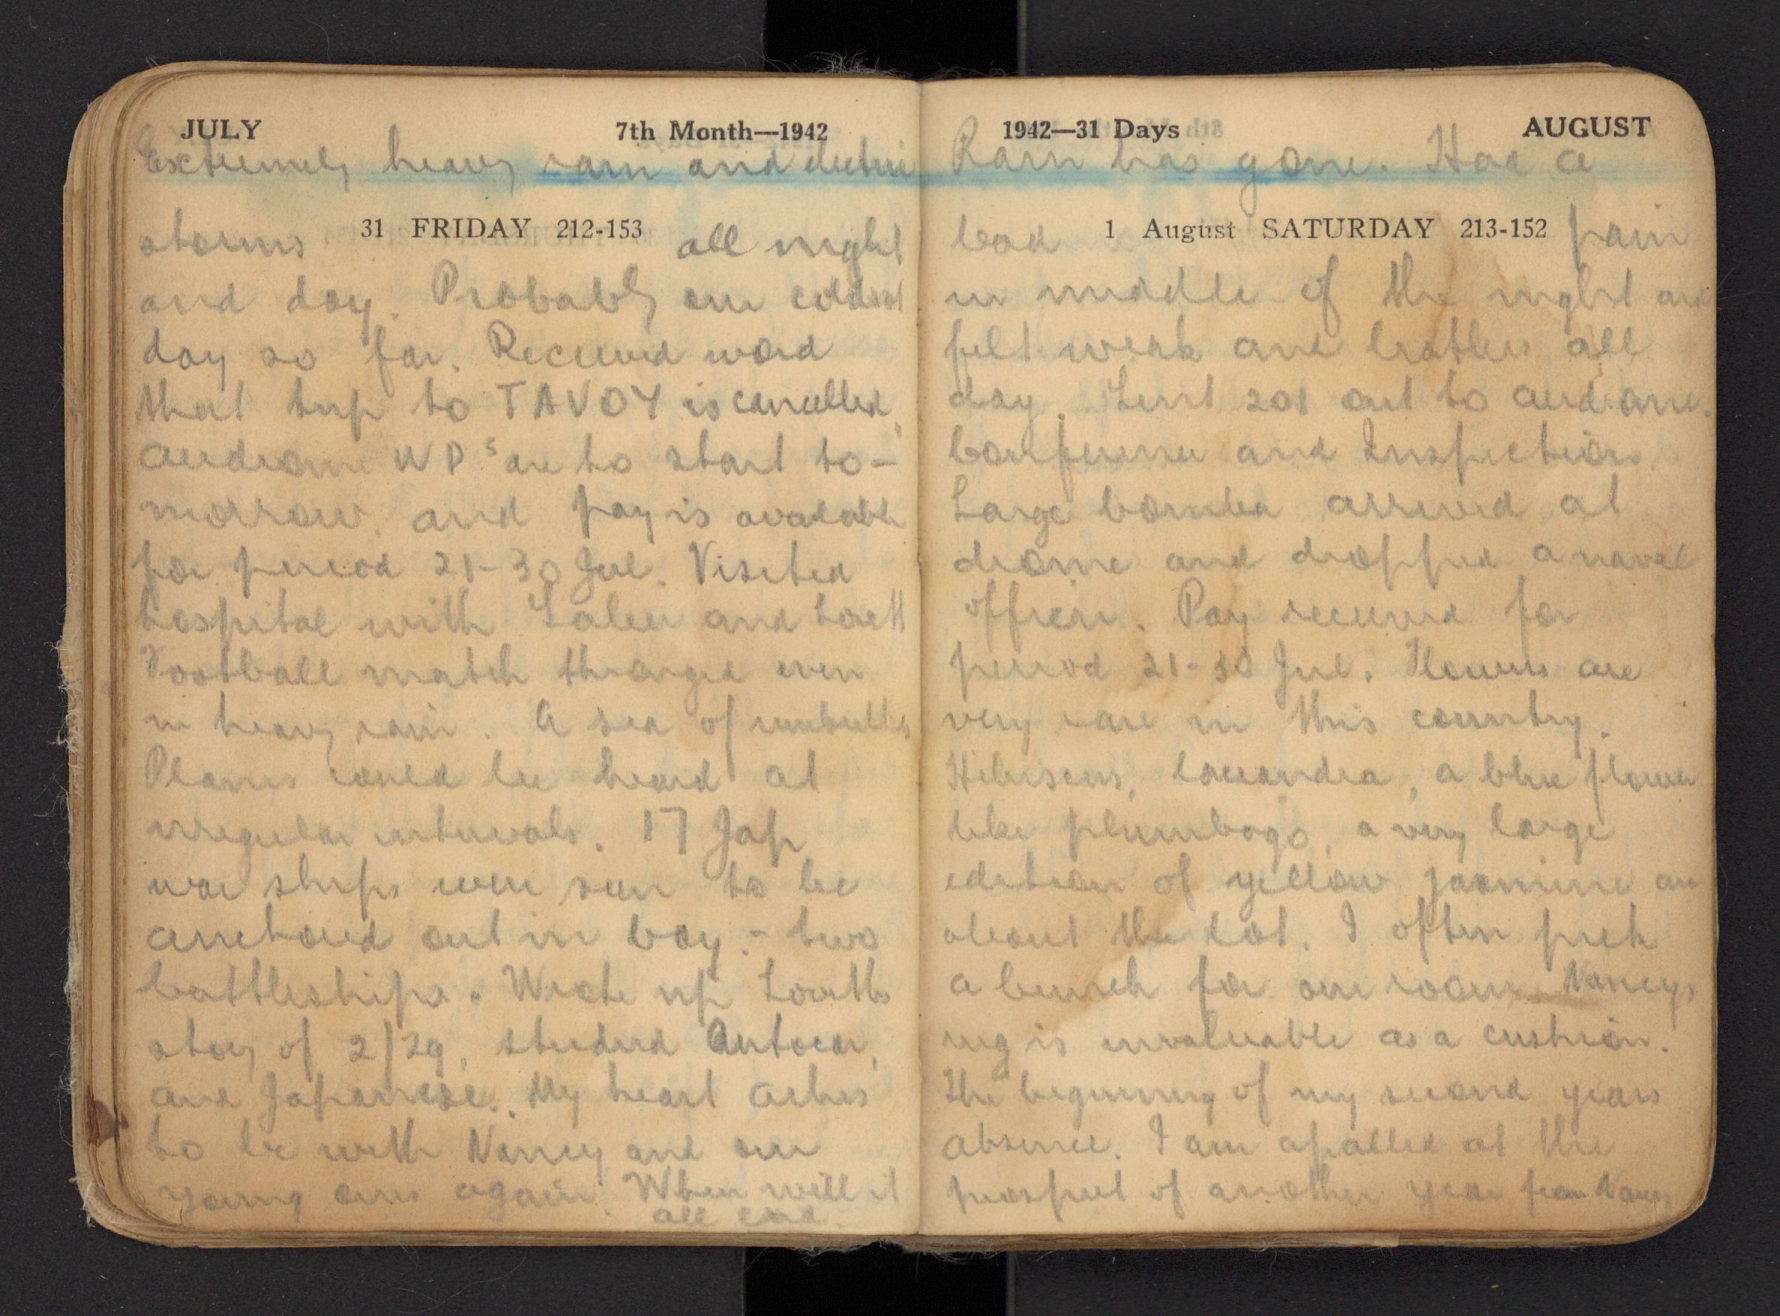 JULY 7th Month—1942
Extremely heavy rain and
storms 31 FRIDAY 212-153 all night
and day. Probably our coldest
day so far. Received word
that trip to TAVOY is cancelled,
WPs are to start to-
morrow. and pay is available
for period 21-30 Jul. Visited
hospital with and
Football match thronged even
in heavy rain. A sea of umbrellas
Planes could be heard at
irregular intervals. 17 Jap
war ships were seen to be
anchored out in bay - two
battleships. Wrote up
story of 2/29, studied Autocar,
and Japanese. My heart aches
to be with Nancy and our
young ones again. When will it
all end.
1942—31 Days AUGUST
Rain has gone. Had a
bad 1 August SATURDAY 213-152 pain
in middle of the night and
felt weak and all
day. Sent 201 out to
and Inspection.
Large bomber arrived at
drome and dropped a naval
officer. Pay received for
period 21-30 Jul. Flowers are
very rare in this country.
Hibiscus, a blue flower
like plumbago, a very large
edition of yellow jasmine are
about the lot. I often pick
a bunch for our room. Nancy's
rug is invaluable as a cushion.
The beginning of my second years
absence. I am apalled at the
prospect of another year from Nancy